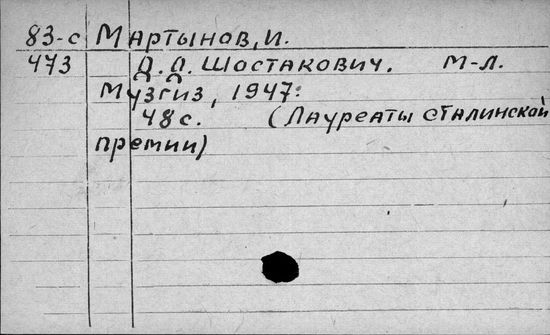 83-с Мартынов, И.
473 Д. Д. Шостакович. М-Л.
Музгиз, 1947.
48 с. (Лауреаты сталинской
премии)